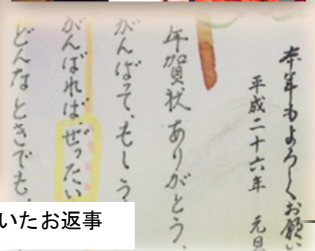 本年もよろしくお願い
平成二十六年 元旦
年賀状ありがとう、
がんばって、もしう
がんばればぜったい
どんなときでも、
いたお返事